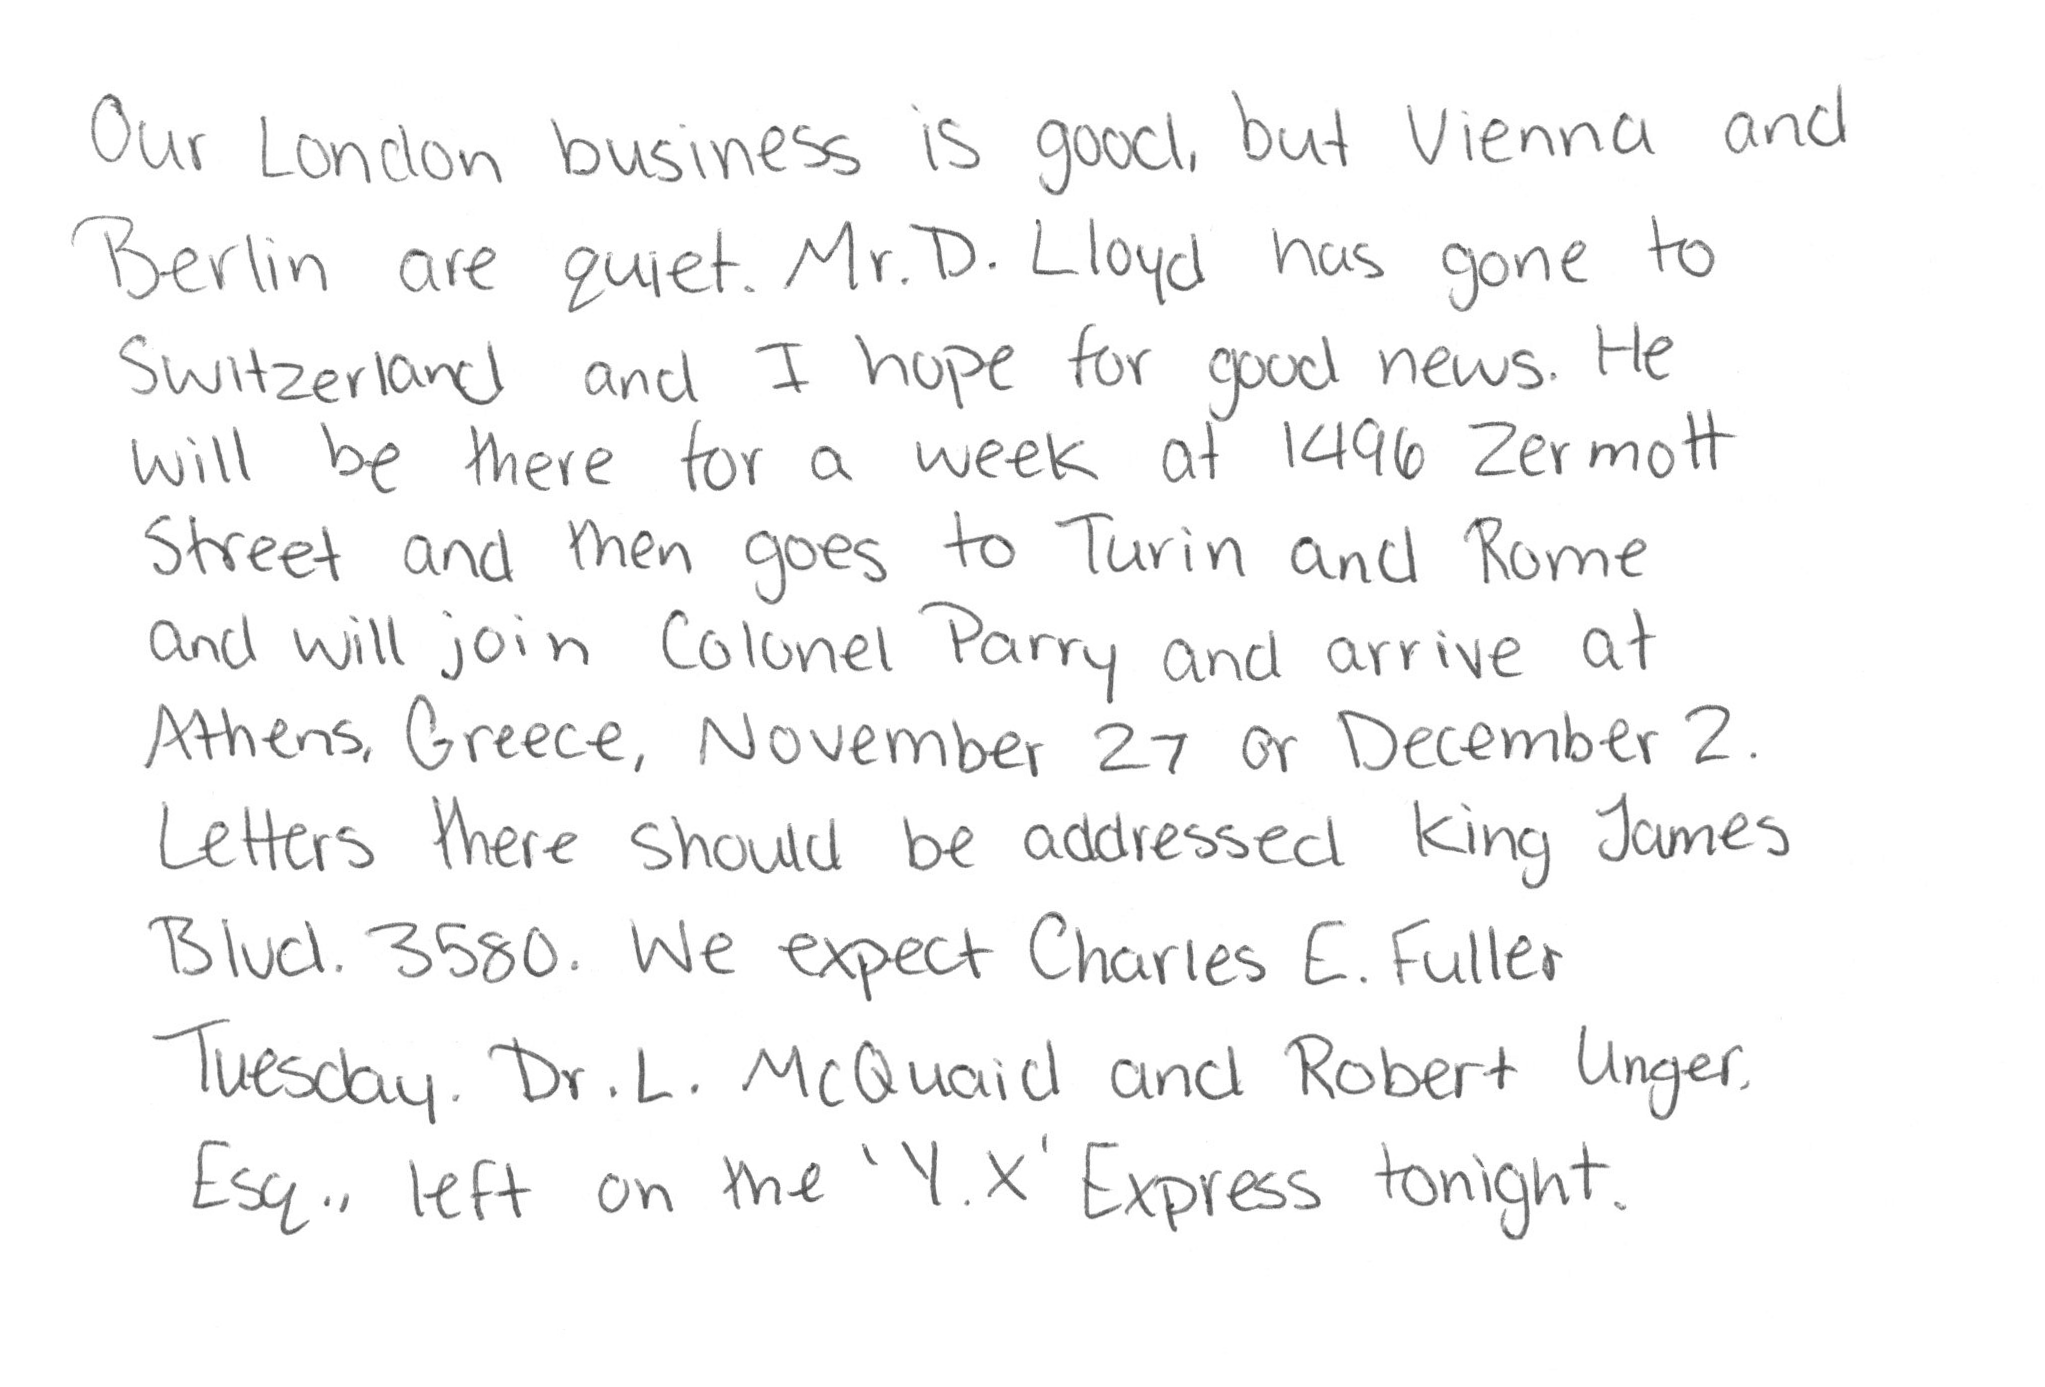 Our London business is good, but Vienna and
Berlin are quiet. Mr. D. Lloyd has gone to
Switzerland and I hope for good news. He
will be there for a week at 1496 Zermott
Street and then goes to Turin and Rome
and will join Colonel Parry and arrive at
Athens, Greece, November 27 or December 2.
Letters there should be addressed King James
Blvd. 3580. We expect Charles E. Fuller
Tuesday. Dr. L. McQuaid and Robert Unger,
Esq., left on the 'Y.X' Express tonight.